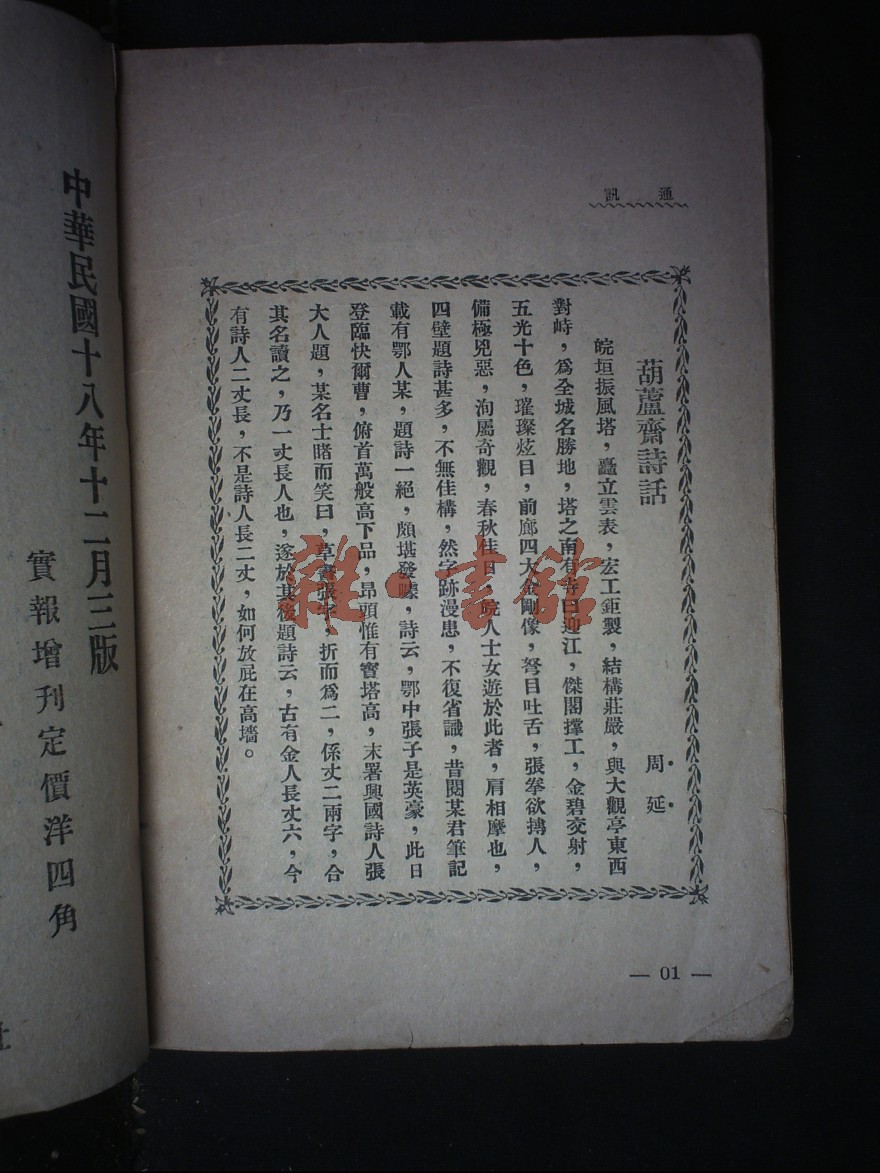 通訊
葫蘆齋詩話
周延
皖垣振風塔，矗立雲表，宏工鉅製，結構莊嚴，與大觀亭東西
對峙，爲全城名勝地，塔之南有寺曰迎江，傑閣撐工，金碧交射，
五光十色，璀璨炫目，前廊四大金剛像，弩目吐舌，張拳欲摶人，
備極兇惡，洵屬奇觀，春秋佳日，皖人士女遊於此者，肩相摩也，
四壁題詩甚多，不無佳構，然字跡漫患，不復省識，昔閱某君筆記
載有鄂人某，題詩一絕，頗堪發噱，詩云，鄂中張子是英豪，此日
登臨快爾曹，俯首萬般高下品，昂頭惟有寶塔高，末署興國詩人張
大人題，某名士睹而笑曰，草書張字，折而爲二，係丈二兩字，合
其名讀之，乃一丈長人也，遂於其後題詩云，古有金人長丈六，今
有詩人二丈長，不是詩人長二丈，如何放屁在高墻。
— 01 —
中華民國十八年十二月三版
實報增刊定價洋四角
社
雜·書館